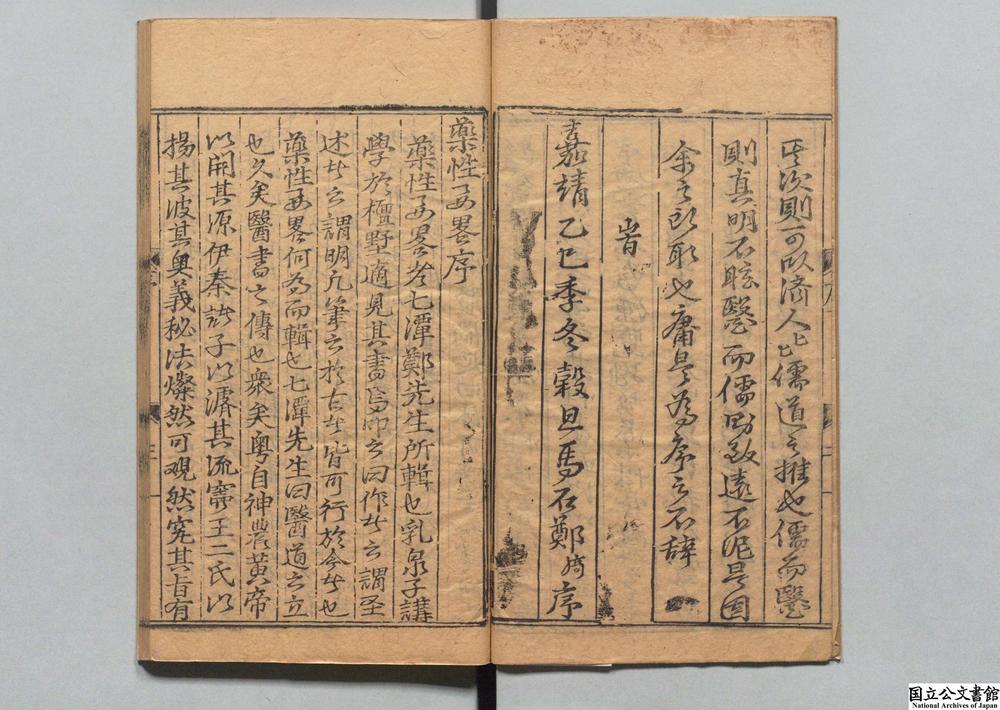 其次則可以濟人亡儒道之推也儒而醫
則真明不眩醫而儒則致遠不泥是固
余之所取也庸是為序之不辭
峕
嘉靖乙巳季冬穀旦馬石鄭 序
藥性要畧序
藥性要畧者七潭鄭先生所輯也乳泉子講
學於檀墅適見其書焉叩之曰作者之謂聖
述者之謂明凡筆之於古者皆可行於今者也
藥性要畧何為而輯也七潭先生曰醫道之立
也久矣醫書之傳也衆矣粵自神農黃帝
以開其源伊秦諸子以濬其流竇王二氏以
揚其波其奥義秘法燦然可觀然究其旨有
国立公文書館
National Archives of Japan